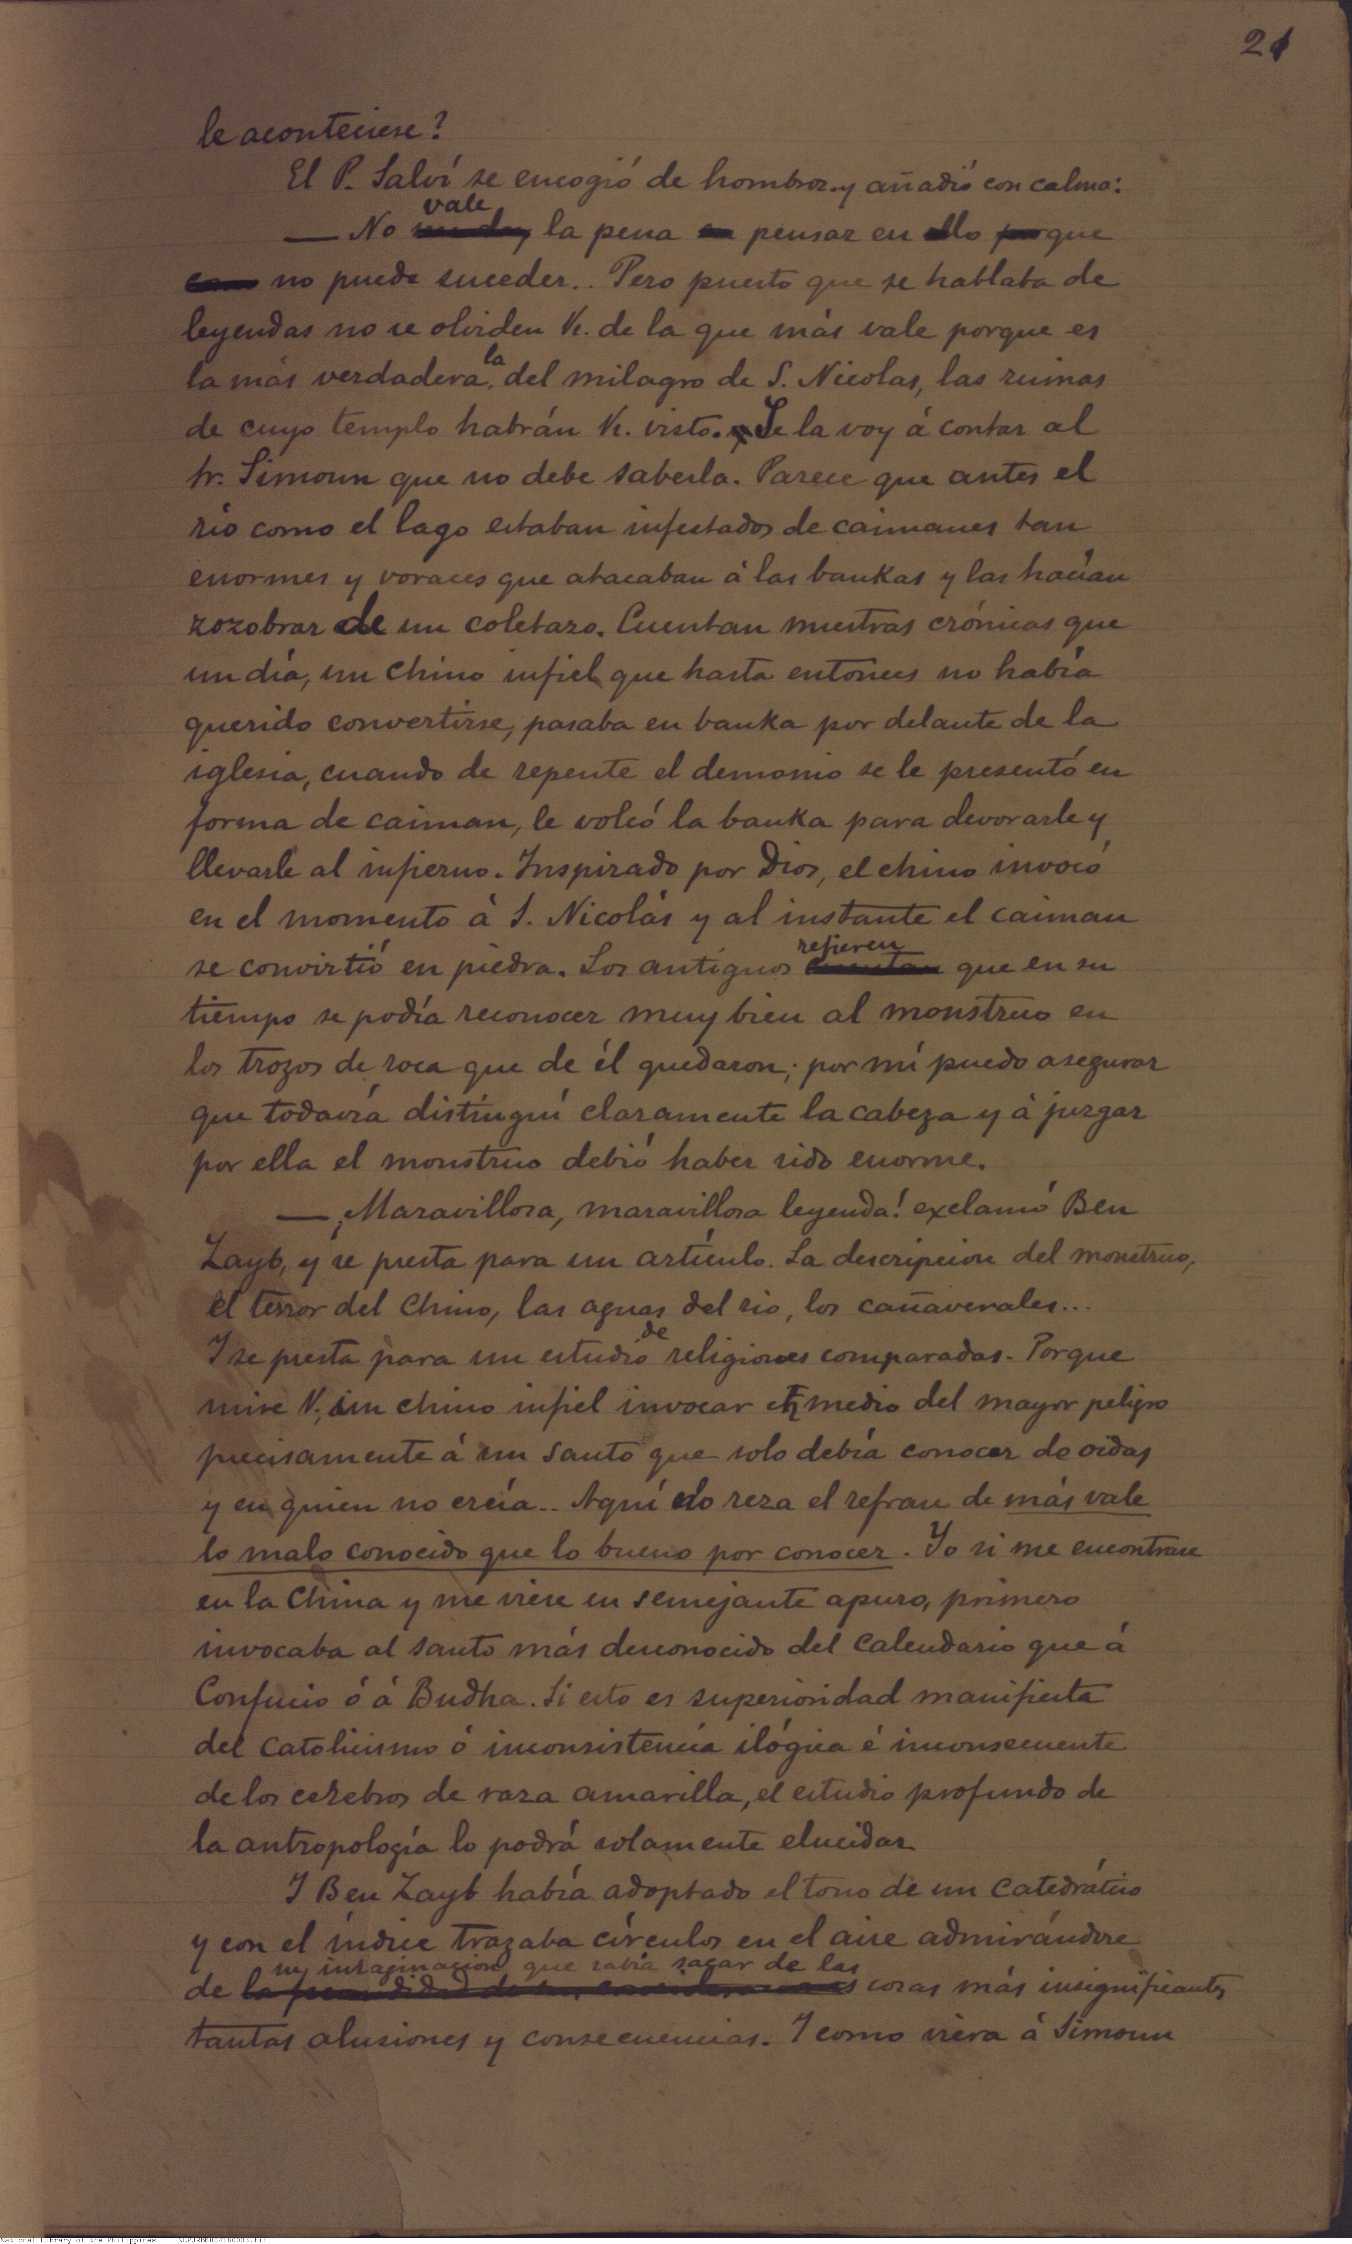 21
le aconteciese?
El P. Salví se encogió de hombros y añadió con calma:
— No vale la pena pensar en ello que
no puede suceder.. Pero puesto que se hablaba de
leyendas no se olviden V. de la que más vale porque es
la más verdadera, la del milagro de S. Nicolas, las ruinas
de cuyo templo habrán V. visto. Se la voy á contar al
Sr. Simoun que no debe saberla. Parece que antes el
río como el lago estaban infestados de caimanes tan
enormes y voraces que atacaban á las bankas y las hacían
zozobrar de un coletazo. Cuentan nuestras crónicas que
un día, un chino infiel que hasta entonces no había
querido convertirse, pasaba en banka por delante de la
iglesia, cuando de repente el demonio se le presentó en
forma de caiman, le volcó la banka para devorarle y
llevarle al infierno. Inspirado por Dios, el chino invocó
en el momento á S. Nicolás y al instante el caiman
se convirtió en piedra. Los antiguos refieren que en su
tiempo se podía reconocer muy bien al monstruo en
los trozos de roca que de él quedaron; por mí puedo asegurar
que todavía distinguí claramente la cabeza y á juzgar
por ella el monstruo debió haber sido enorme.
— ¡Maravillosa, maravillosa leyenda! exclamó Ben
Zayb, y se presta para un artículo. La descripcion del monstruo,
el terror del chino, las aguas del rio, los cañaverales...
Y se presta para un estudio de religiones comparadas. Porque
mire V., un chino infiel invocar en medio del mayor peligro
precisamente á un santo que solo debía conocer de oidas
y en quien no creía.. Aquí no reza el refran de más vale
lo malo conocido que lo bueno por conocer. Yo si me encontrase
en la China y me viese en semejante apuro, primero
invocaba al santo más desconocido del calendario que á
Confucio ó á Budha. Si esto es superioridad manifiesta
del catolicismo ó inconsistencia ilógica é inconsecuente
de los cerebros de raza amarilla, el estudio profundo de
la antropología lo podrá solamente elucidar
Y Ben Zayb había adoptado el tono de un catedrático
y con el índice trazaba círculos en el aire admirándose
de su imaginacion que sabía sacar de las cosas más insignificantes
tantas alusiones y consecuencias. Y como viera á Simoun